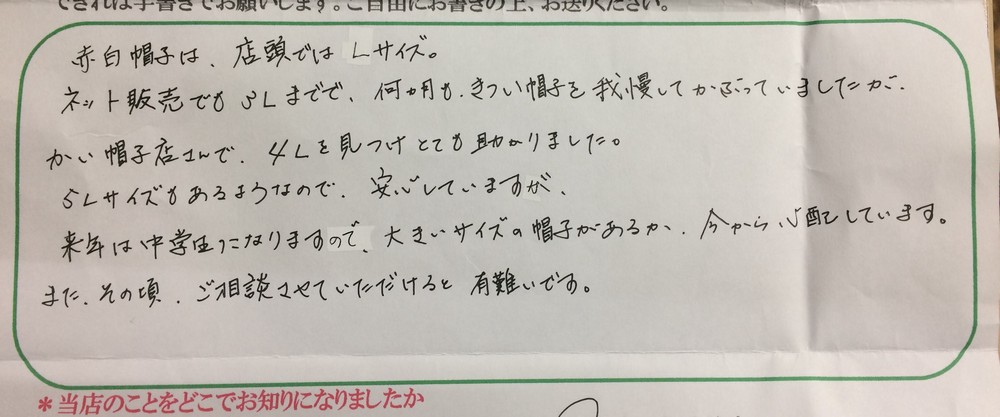 できれば手書きでお願いします。ご自由にお書きの上、お送りください。
赤白帽子は、店頭では Lサイズ。
ネット販売でも 5Lまでで、何ヵ月も、きつい帽子を我慢してかぶっていましたが、
かい帽子店さんで、4Lを見つけとても助かりました。
5Lサイズもあるようなので、安心していますが、
来年は中学生になりますので、大きいサイズの帽子があるか、今から心配しています。
また、その頃、ご相談させていただけると有難いです。
*当店のことをどこでお知りになりましたか